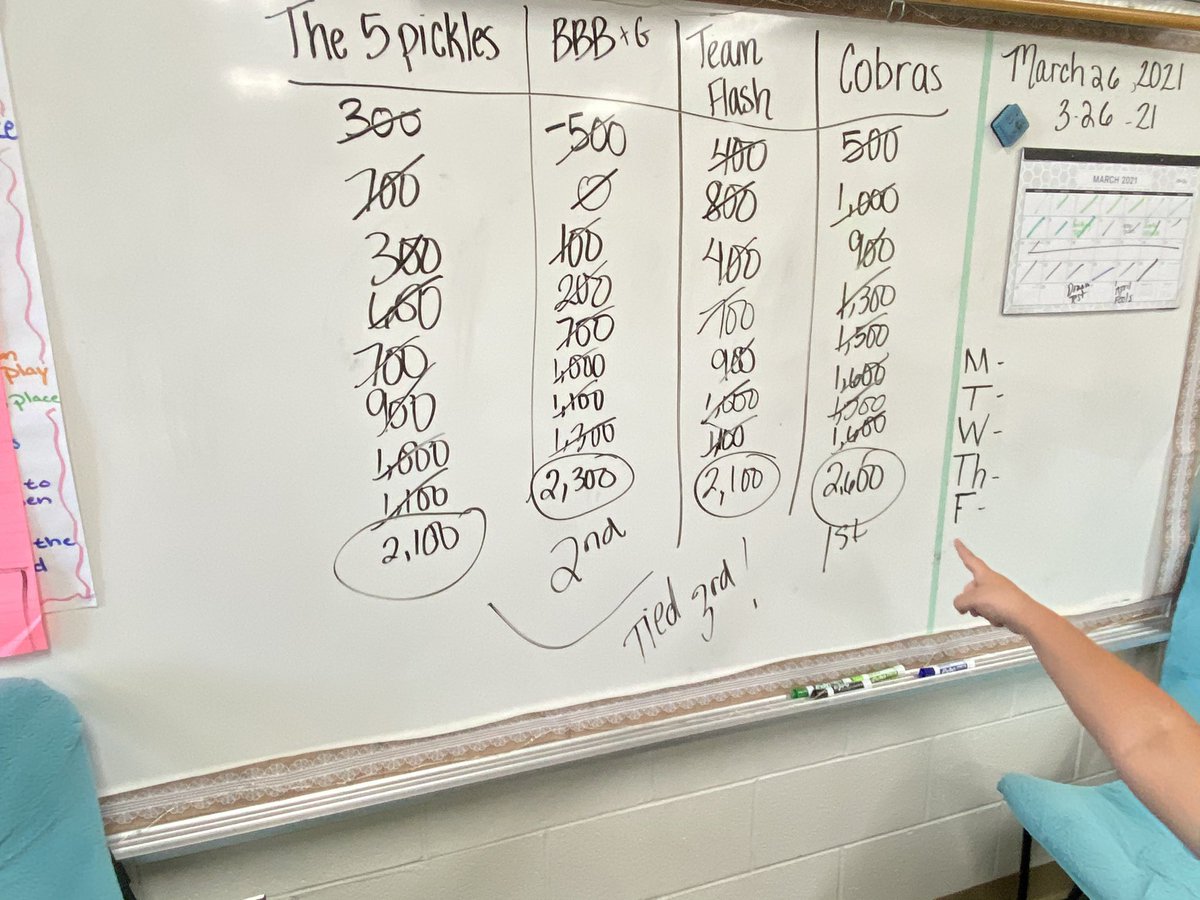 The 5 pickles
300
700
300
600
700
900
1,000
1,100
2,100
BBB + G
-500
0
100
200
700
1,000
1,100
1,300
2,300
2nd
Team
Flash
400
800
400
700
900
1,000
1,100
2,100
Tied 3rd!
Cobras
500
1,000
900
1,300
1,500
1,600
1,500
1,600
2,600
1st
March 26, 2021
3-26-21
MARCH 2021
April
Fools
M-
T-
W-
Th-
F-
play
place
to
en
the
d